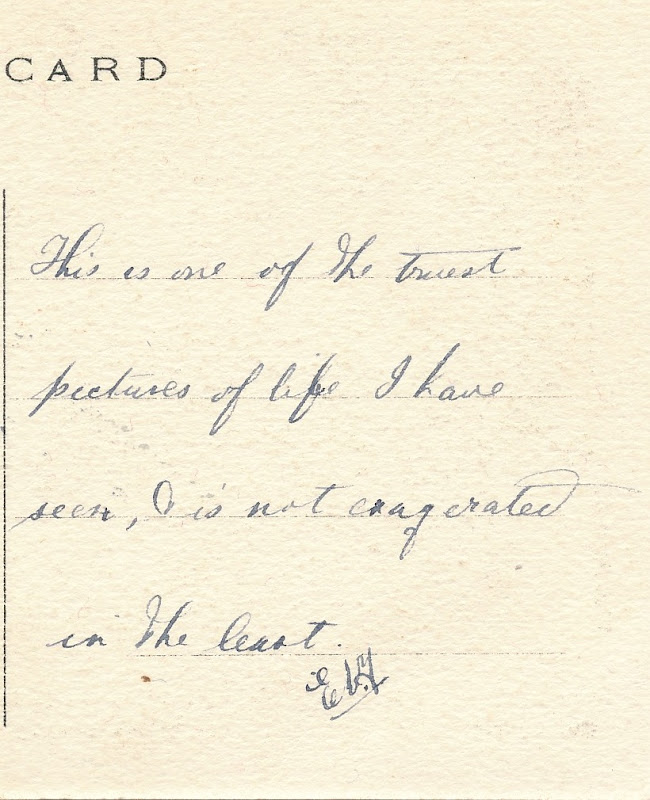 CARD
This is one of the truest
pictures of life I have
seen, is not exagerated
in the least.